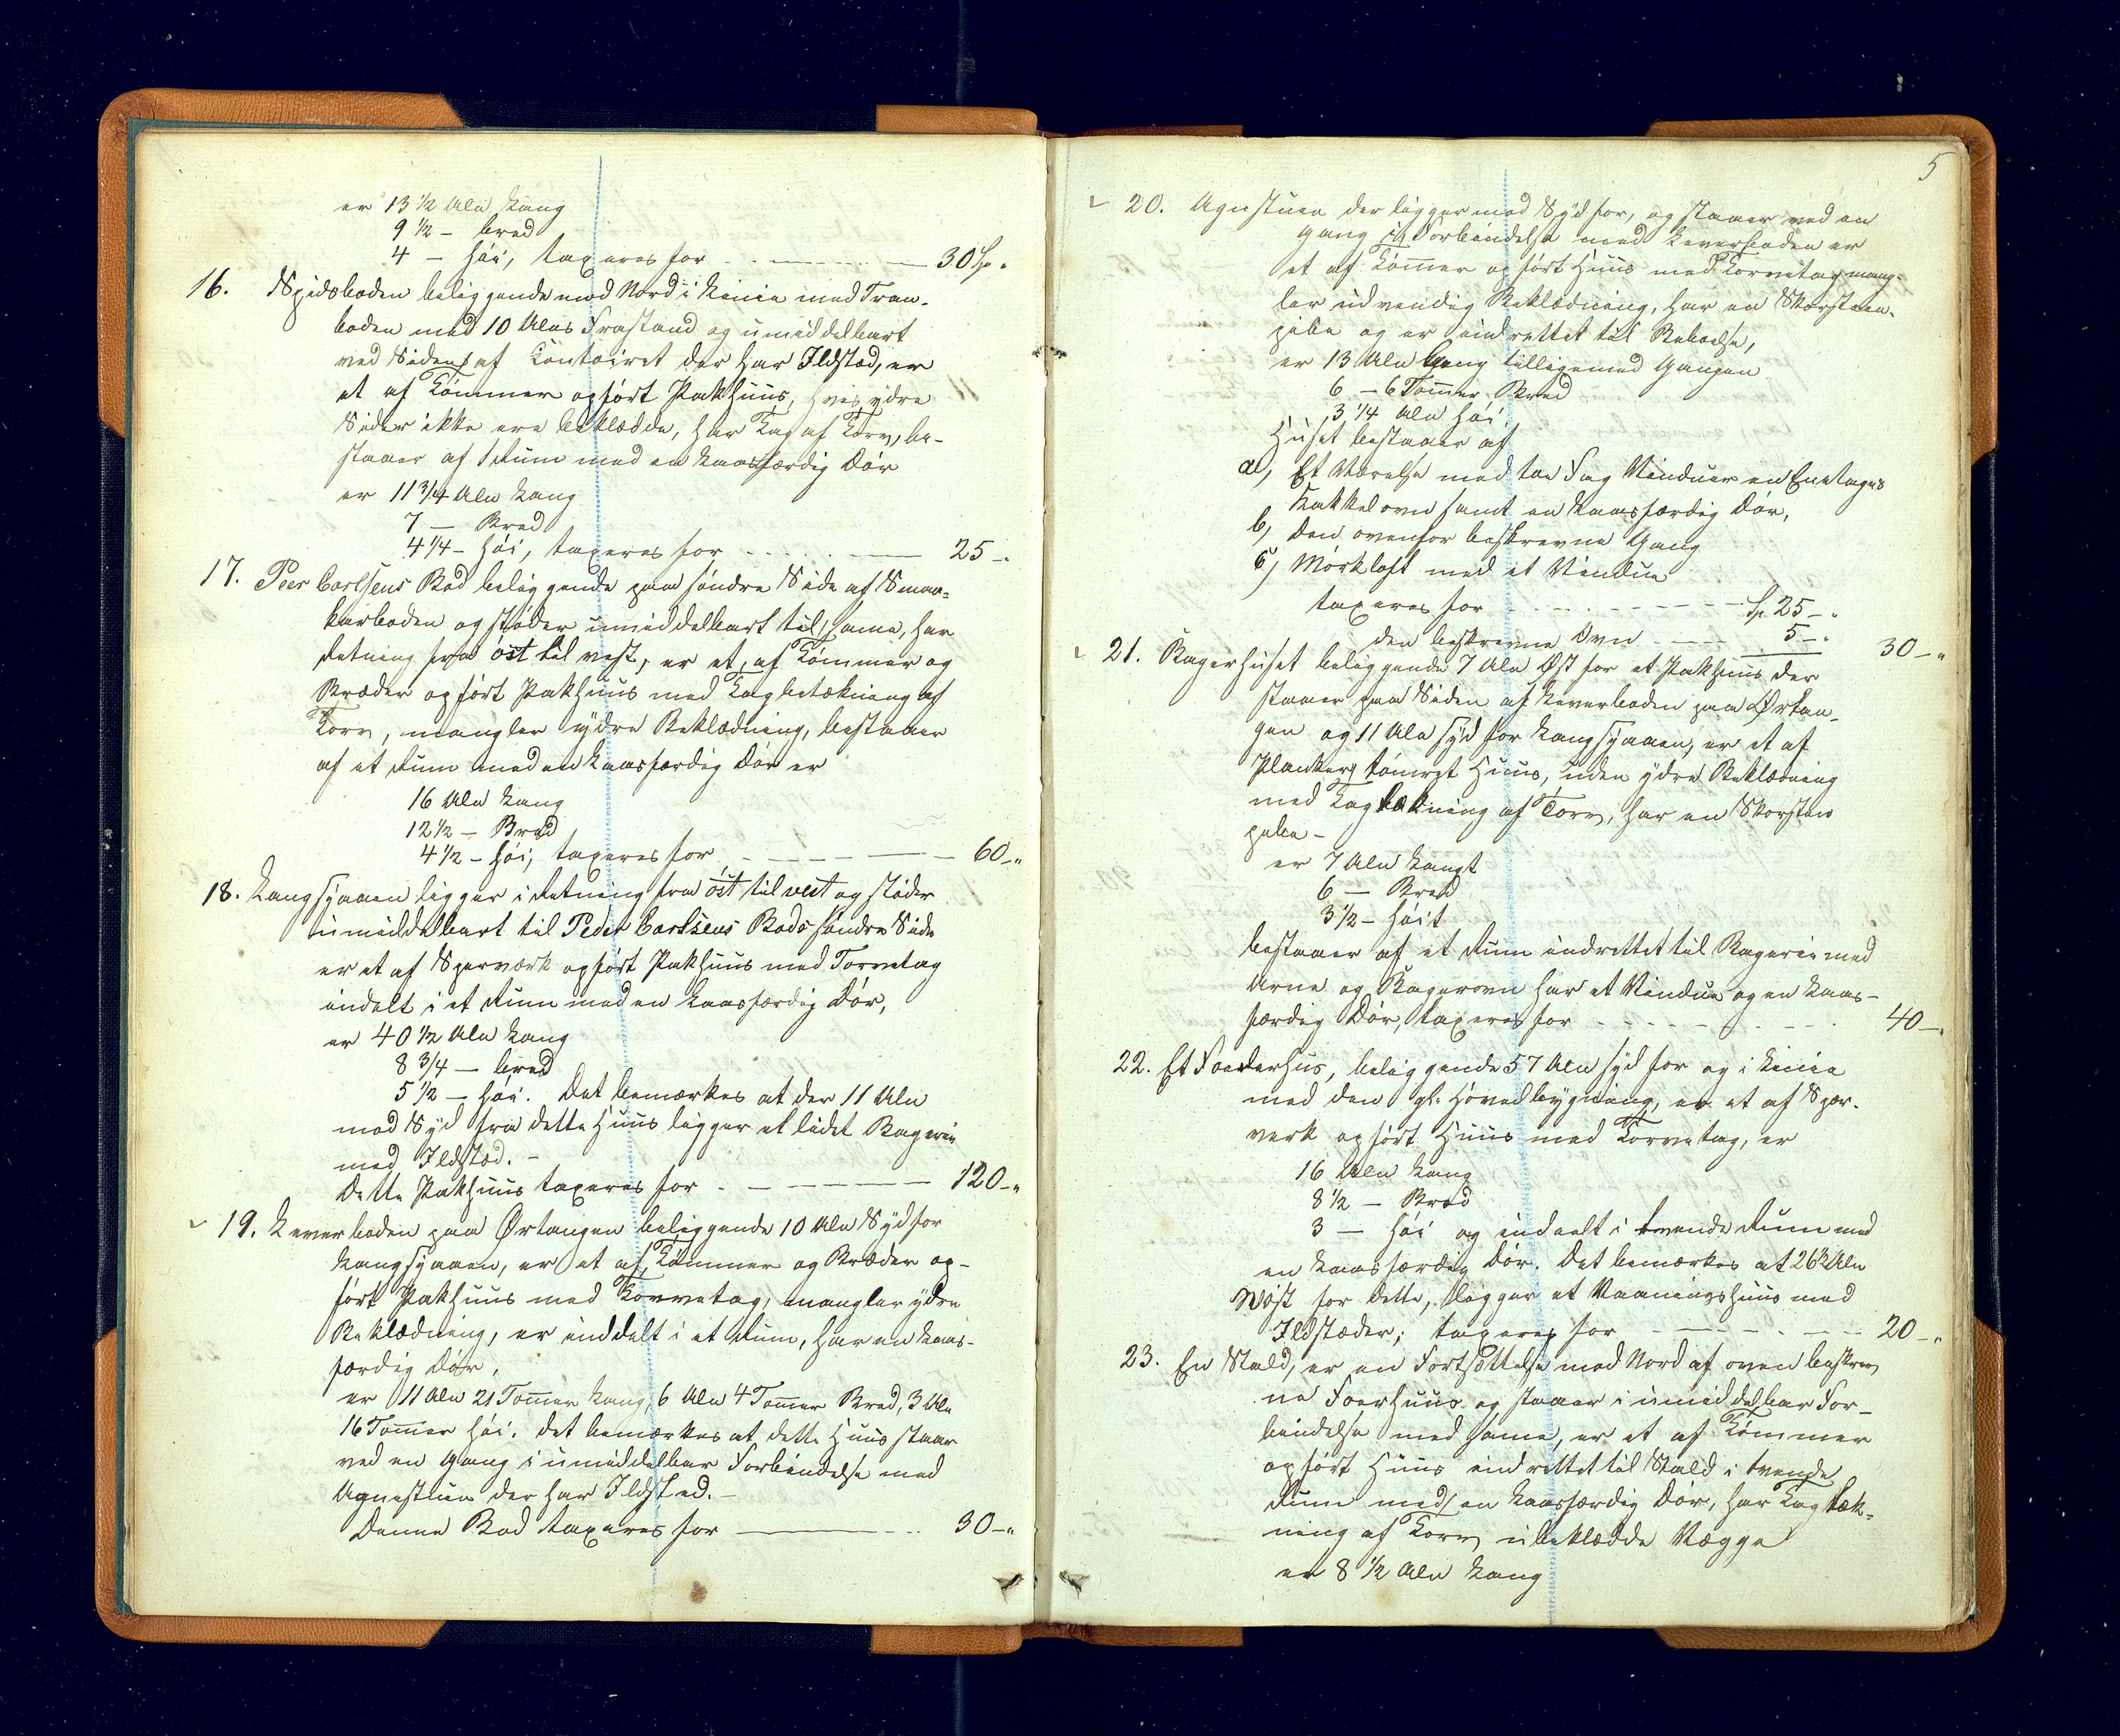 er 13 1/2 Alen Lang
9 1/2 – bred
4 – høi, taxeres for - - - - - 30 Sp „
16. Spidsboden beliggende mod Nord i Linie med Tran-
boden med 10 Alens Frastand og umiddelbart
ved Siden af Contoiret der har Ildsted, er
et af Tømmer opført Pakhuus, hvis ydre
Sider ikke ere beklædde, har Tag af Torv, be-
staaer af 1 Rum med en Laasfærdig Dør
er 11 3/4 Alen Lang
7 – Bred
4 1/4 – høi, taxeres for - - - - - 25 – „
17. Peer Carlsens Bod beliggende paa søndre Side af Smaa-
karboden og støder umiddelbart til same, har
Retning fra øst til vest, er et af Tømmer og
Bræder opført Pakhuus med Tagbetækning af
Torv, mangler ydre Beklædning, bestaaer
af et Rum med en Laasfærdig Dør er
16 Alen Lang
12 1/2 – Bred
4 1/2 – høi, taxeres for - - - - - 60 – „
18. Langsjaaen ligger i Retning fra øst til vest og støder
umiddelbart til Peder Carlsens Bods søndre Side
er et af Sperværk opført Pakhuus med Torvetag
indelt i et Rum med en Laasfærdig Dør,
er 40 1/2 Alen Lang
8 3/4 – bred
5 1/2 – høi. Det bemærkes at der 11 Alen
mod Syd fra dette Huus ligger et lidet Bagerie
med Ildsted. –
Dette Pakhuus taxeres for - - - - - 120 – „
19. Leverboden paa Ørtangen beliggende 10 Alen Syd for
Langsjaaen, er et af Tømmer og Bræder op-
ført Pakhuus med Torvetag, mangler ydre
Beklædning, er inddelt i et Rum, har en Laas-
færdig Dør,
er 11 Alen 21 Tommer Lang, 6 Alen 4 Tommer Bred, 3 Alen
16 Tommer høi. Det bemærkes at dette Huus staar
ved en Gang i umiddelbar Forbindelse med
Agnestuen der har Ildsted. –
Denne Bod taxeres for - - - - - 30 – „
5
20. Agnstuen der ligger mod Syd for, og staaer ved en
Gang i Forbindelse med Leverboden er
et af Tømmer opført Huus med Torvetag mang-
ler udvendig Beklædning, har en Skorsteen-
pibe og er indrettet til Beboelse,
er 13 Alen Lang tilligemed Gangen
6 – 6 Tommer Bred
3 1/4 Alen høi.
Huset bestaaer af
a, Et Værelse med toe Fag Vinduer en Eenetages
Kakkelovn samt en Laasfærdig Dør,
b, Den ovenfor beskrevne Gang
c, Mørkloft med et Vindue
taxeres for - - - - - Sp 25 – „
den beskrevne Ovn - - - 5 – „ 30 – „
21. Bagerhuset beliggende 7 Alen Øst for et Pakhuus der
staaer paa Siden af Leverboden paa Ørtan-
gen og 11 Alen syd for Langsjaaen, er et af
Planker tømret Huus, uden ydre Beklædning
med Tagtækning af Torv, har en Skorsteen
pibe –
er 7 Alen Langt
6 – Bred
3 1/2 – høit
bestaaer af et Rum indrettet til Bagerie med
Arne og Bagerovn har et Vindue og en Laas-
færdig Dør, taxeres for - - - - - 40 – „
22. Et Foederhus, beliggende 57 Alen syd for og i Linie
med den gl. Hovedbygning, er et af Spær-
verk opført Huus med Torvetag, er
16 Alen Lang
8 1/2 – Bred
3 – høi og indeelt i tvende Rum med
en Laasfærdig Dør. Det bemærkes at 26 1/2 Alen
Vest for dette, ligger et Vaaningshuus med
Ildstæder; taxeres for - - - - - 20 – „
23. En Stald, er en Fortsættelse mod Nord af oven beskrev
ne Foerhuus og staaer i umiddelbar For-
bindelse med same, er et af Tømmer
opført Huus indrettet til Stald i tvende
Rum med en Laasfærdig Dør, har Tagtæk-
ning af Torv ubeklædde Vægge
er 8 1/2 Alen Lang